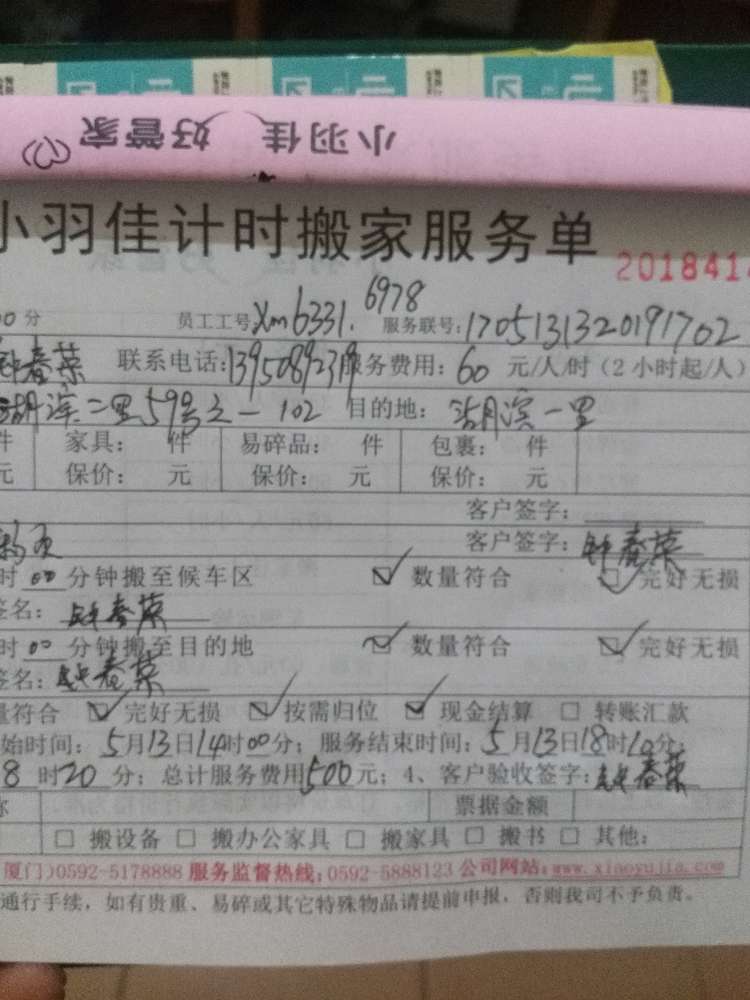 小羽佳 好管家
小羽佳计时搬家服务单
2018414
00分 员工工号 Xm6331. 6978 服务联号:1705131320191702
钟春菜 联系电话:13950892319 服务费用:60 元/人/时（2小时起/人）
湖滨二里59号之一102 目的地: 湖滨一里
件 家具: 件 易碎品: 件 包裹: 件
元 保价: 元 保价: 元 保价: 元
客户签字:
客户签字: 钟春菜
时00分钟搬至候车区 ☑ 数量符合 ☑ 完好无损
签名: 钟春菜
时00分钟搬至目的地 ☑ 数量符合 ☑ 完好无损
签名: 钟春菜
量符合 ☑ 完好无损 ☑ 按需归位 ☑ 现金结算 □ 转账汇款
始时间: 5月13日14时00分; 服务结束时间: 5月13日18时10分;
8时20分; 总计服务费用500元; 4、客户验收签字: 钟春菜
称 票据金额
□ 搬设备 □ 搬办公家具 □ 搬家具 □ 搬书 □ 其他:
厦门)0592-5178888 服务监督热线:0592-5888123 公司网站:www.xiaoyujia.com
通行手续，如有贵重、易碎或其它特殊物品请提前申报，否则我司不予负责。